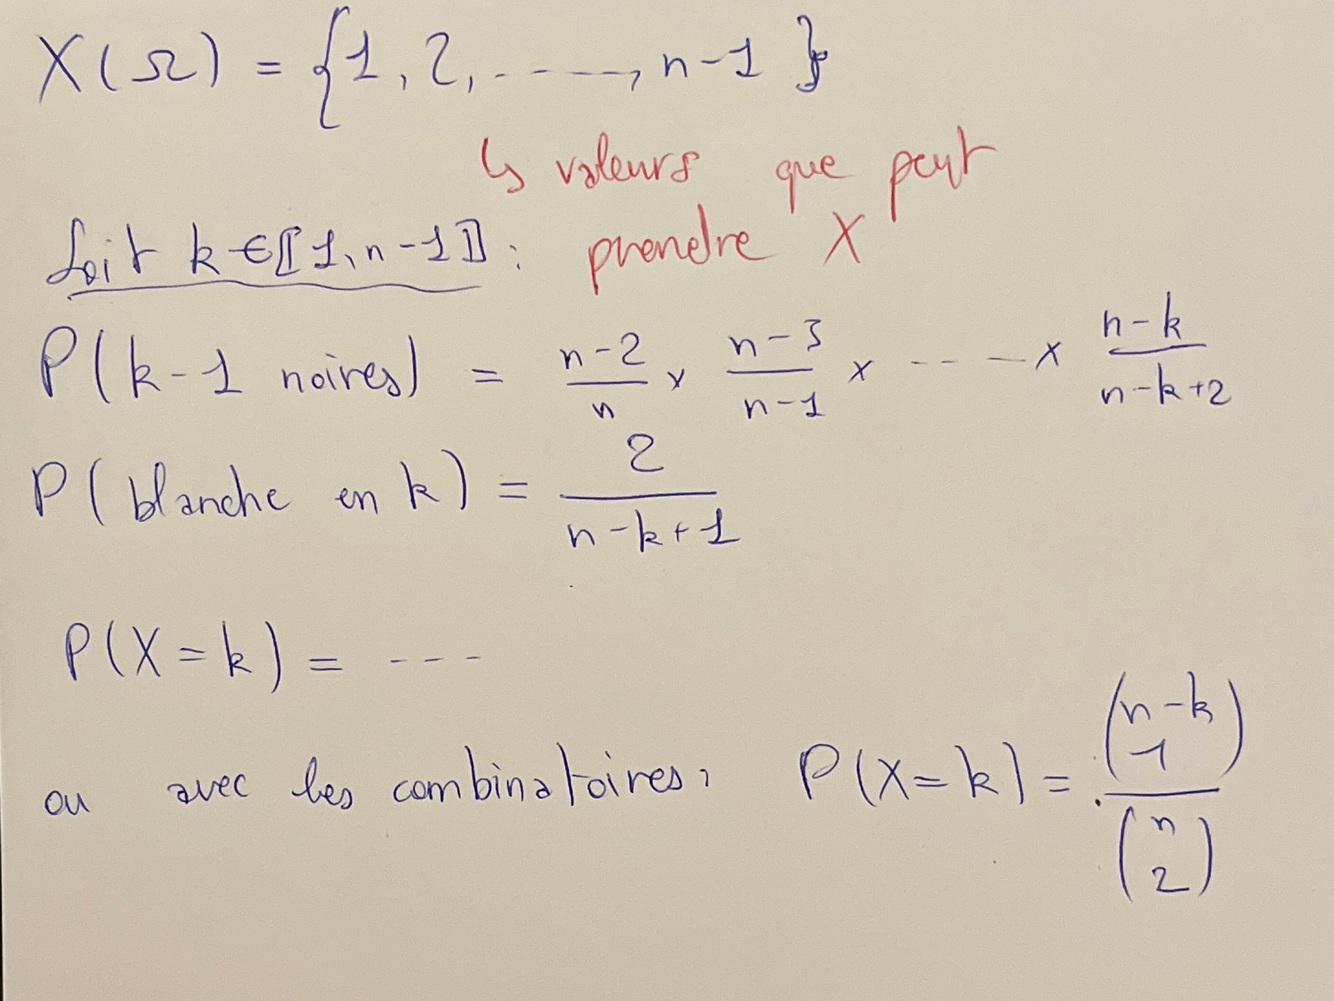 X(Ω) = {1, 2, ....., n-1}
↳ valeurs que peut
prendre X
Soit k ∈ ⟦1, n-1⟧ :
P(k-1 noires) = \frac{n-2}{n} × \frac{n-3}{n-1} × ..... × \frac{n-k}{n-k+2}
P(blanche en k) = \frac{2}{n-k+1}
P(X=k) = ---
ou avec les combinatoires, P(X=k) = \frac{\binom{n-k}{1}}{\binom{n}{2}}